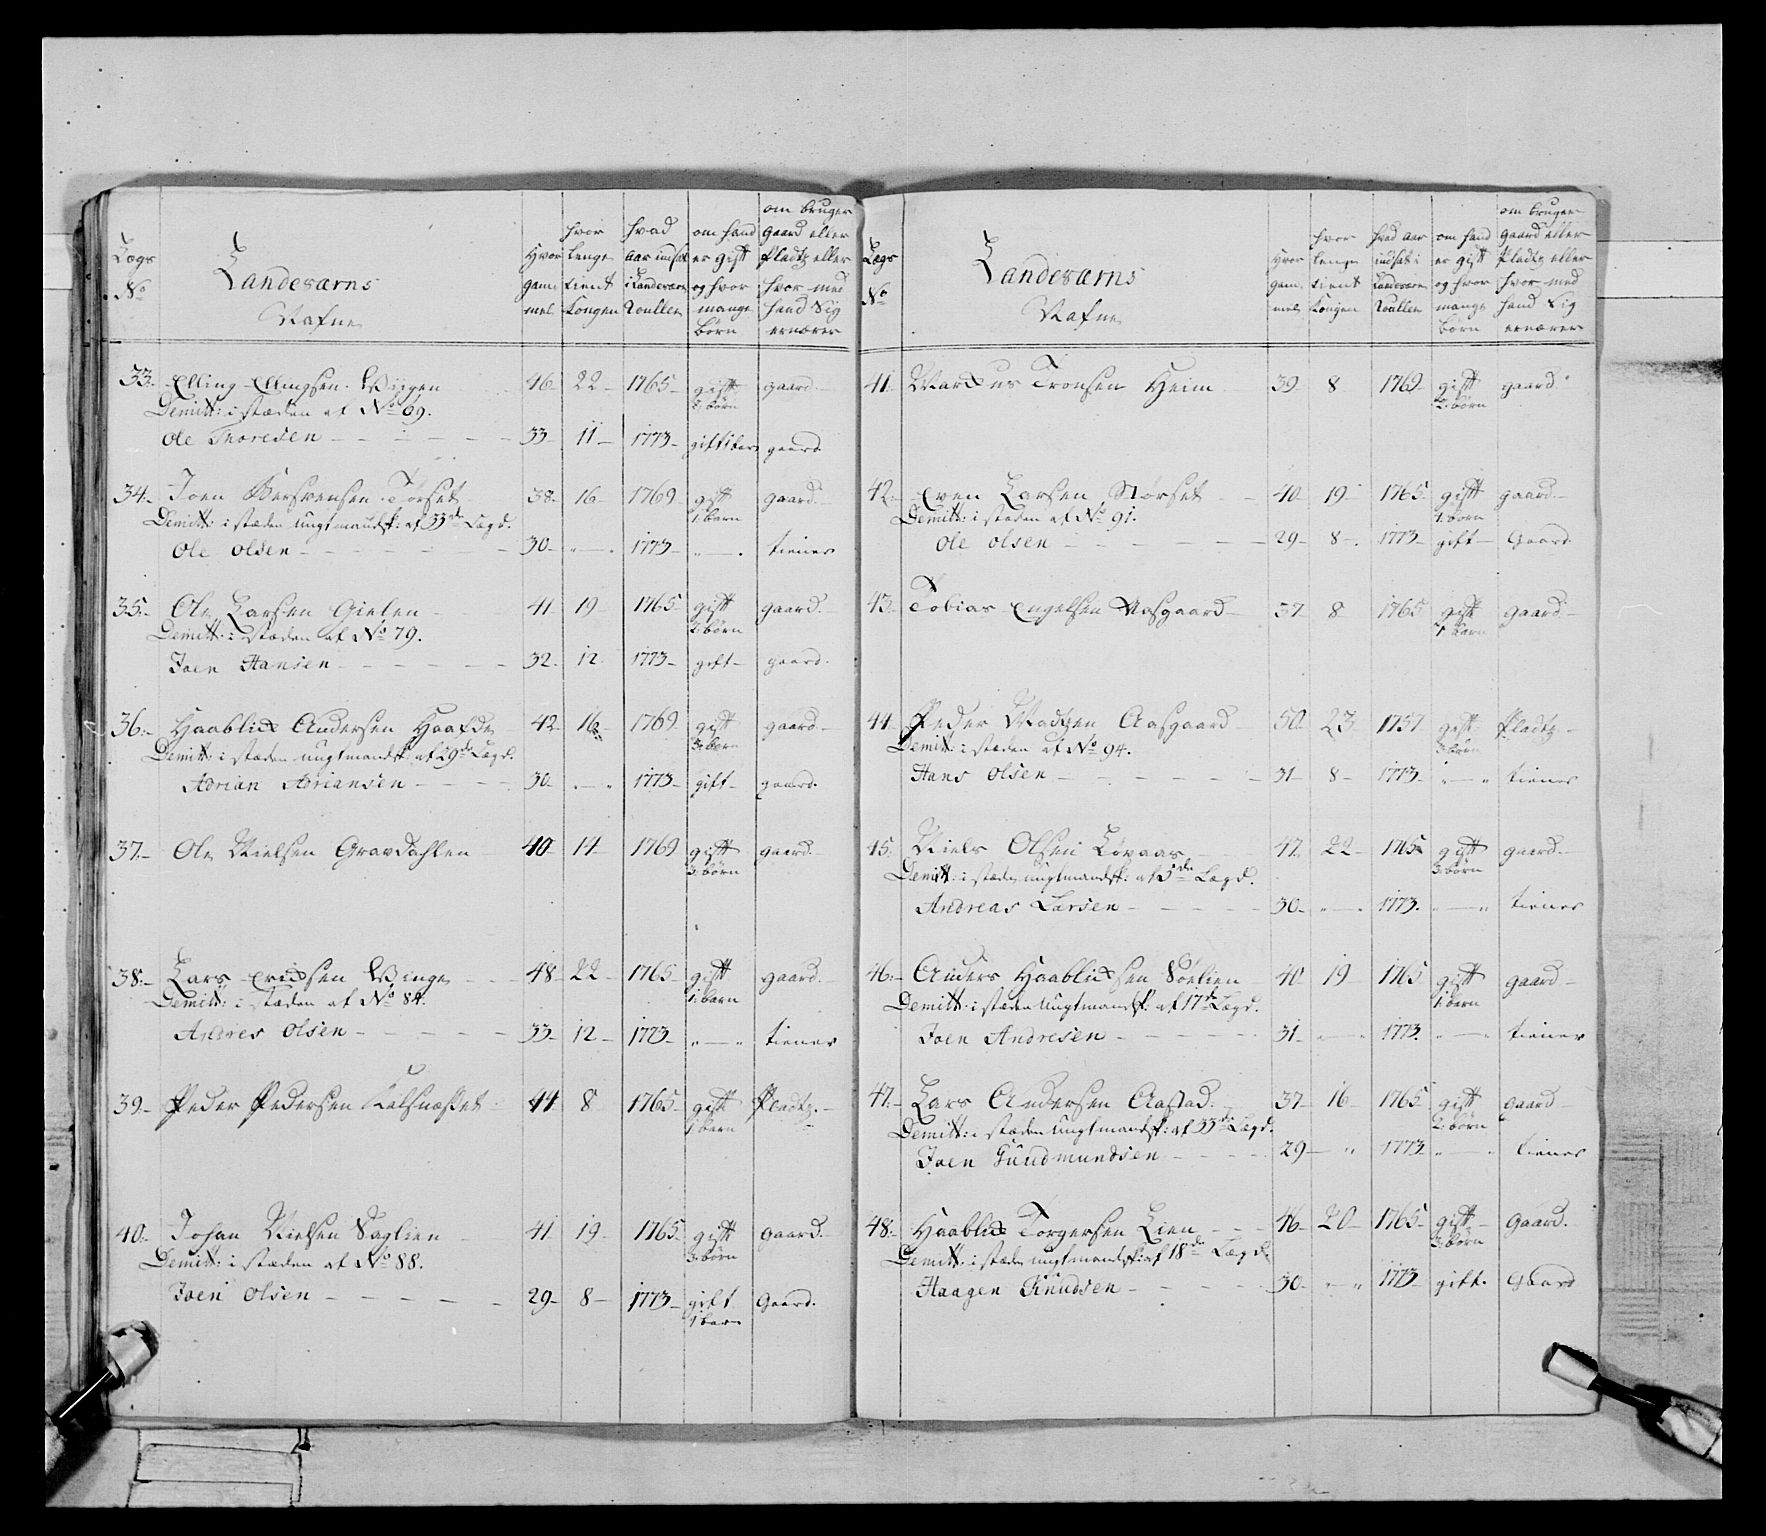 Lægs No
Landeværns Nafne
Hvor gammel
hvor lenge tient Kongen
hvad aar indsat i Landeværns Roullen
om hand er gift og hvor mange børn
om bruger Gaard eller Pladtz eller hvor med hand Sig ernærer
33. Elling Ellingsen Wiggen 46 22 1765 gift 2 børn gaard
Demitt: i stæden af No 69.
Ole Thoresen 33 11 1773 gift 1 barn gaard
34. Joen Torset 38 16 1769 gift 1 barn gaard
Demitt: i stæden ungtmandsk: af 33de Lægd.
Ole Olsen 30 " 1773 " tiener
35. Ole Larsen Gielen 41 19 1765 gift 2 børn gaard
Demitt: i stæden af No 79.
Joen Hansen 32 12 1773 gift gaard
36. Haablich Andersen 42 16 1769 gift 3 børn gaard
Demitt: i stæden ungtmandsk: af 29de Lægd.
Adrian Adriansen 30 " 1773 gift gaard
37. Ole Nielsen Gravdahlen 40 14 1769 gift 3 børn gaard
38. Lars Erichsen Winge 48 22 1765 gift 1 barn gaard
Demitt: i stæden af No 84.
Andres Olsen 33 12 1773 " tiener
39. Peder Pedersen Kalsnæsset 44 8 1765 gift 1 barn Pladtz
40. Johan Nielsen Saglien 41 19 1765 gift 3 børn gaard
Demitt: i stæden af No 88.
Joen Olsen 29 8 1773 gift 1 barn Gaard
Lægs No
Landeværns Nafne
Hvor gammel
hvor lenge tient Kongen
hvad aar indsat i Landeværns Roullen
om hand er gift og hvor mange børn
om bruger Gaard eller Pladtz eller hvor med hand Sig ernærer
41. Marcus Tronsen Heim 39 8 1769 gift 2 børn gaard
42. Even Larsen Størset 40 19 1765 gift 1 barn gaard
Demitt: i stæden af No 91.
Ole Olsen 29 8 1773 gift Gaard
43. Tobias Engelsen Aasgaard 37 8 1765 gift 1 barn gaard
44. Peder Madtzen Aasgaard 50 23 1757 gift børn Pladtz
Demitt: i stæden af No 94.
Hans Olsen 31 8 1773 " tiener
45. Niels Olsen Løvaas 47 22 1765 gift 3 børn gaard
Demitt: i stæden ungtmandsk: af 5de Lægd.
Andreas Larsen 30 " 1773 " tiener
46. Anders Haablichsen Søelien 40 19 1765 gift 1 barn gaard
Demitt: i stæden ungtmandsk: af 17de Lægd.
Joen Andresen 31 " 1773 " tiener
47. Lars Andersen Aastad 37 16 1765 gift 2 børn gaard
Demitt: i stæden ungtmandsk: af 33de Lægd.
Joen Gudmundsen 29 " 1773 " tiener
48. Haablich Torgersen Lien 46 20 1765 gift 3 børn Gaard
Demitt: i stæden ungtmandsk: af 18de Lægd.
Haagen Knudsen 30 " 1773 gift Gaard